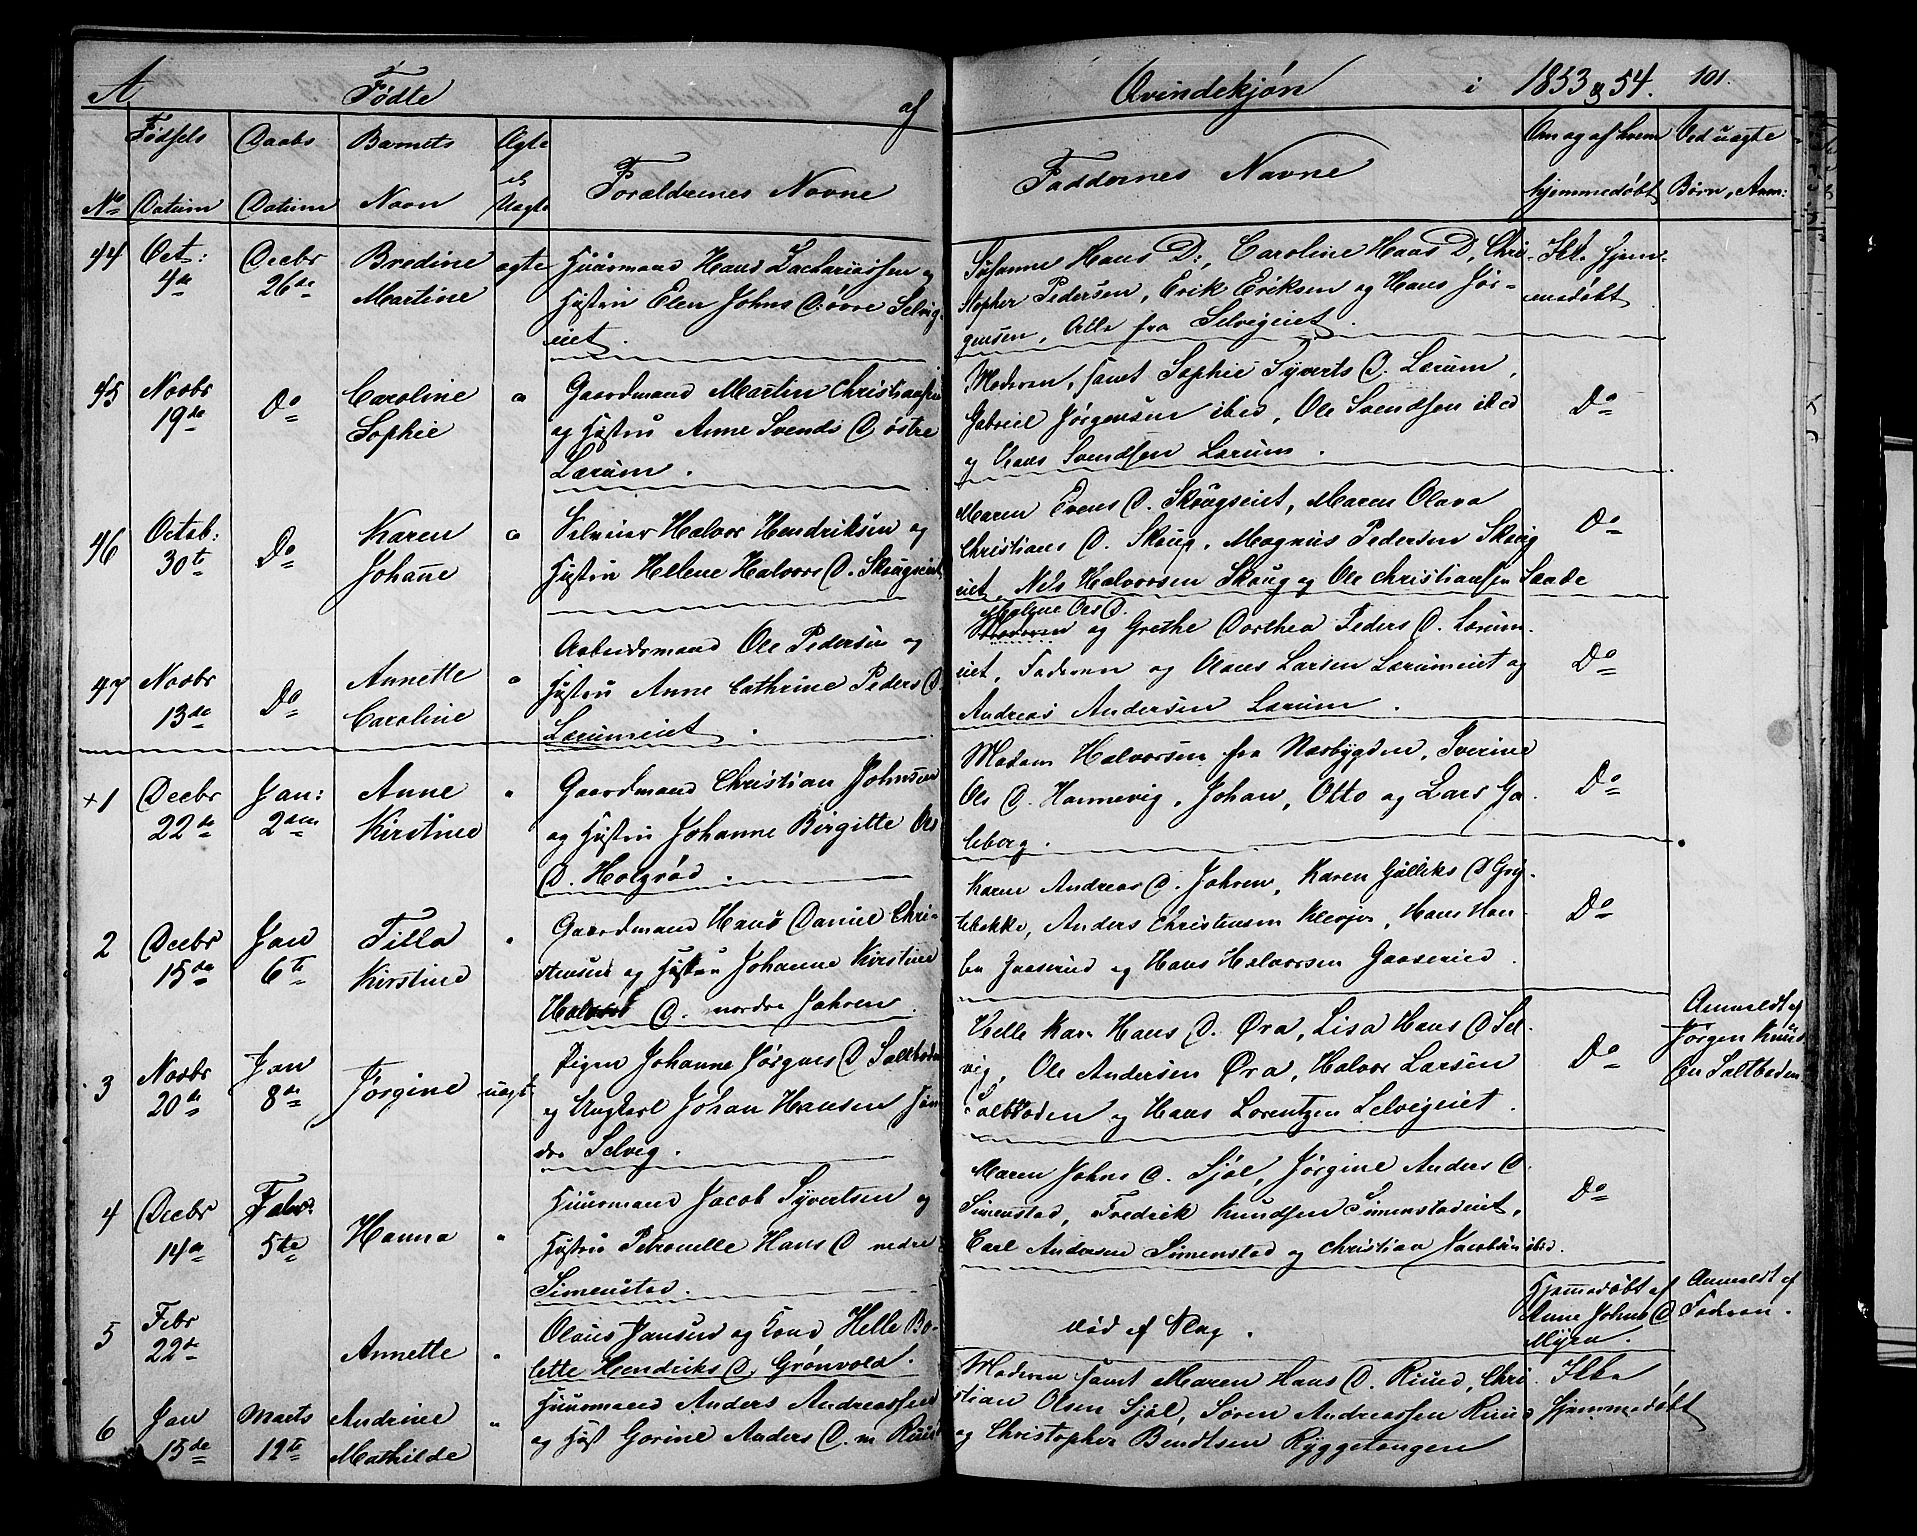 A Født​e af Qvindekjøn i 1853 & 54. 101.
Fødsels Daabs Barnets Ægte Forældrenes Navne Faddernes Navne Om og af hvem Ved uægte
No Datum Datum Navn el Uægte hjemmedøbt Børn, Anm:
44 Oct: 4de Decbr 26de Bredine Martine ægte
Huusmand Hans Zachariassen og
Hustru Elen Johns D: øvre Selvig-
eiet.
Susanne Hans D:, Caroline Hans D, Chri-
stopher Pedersen, Erik Eriksen og Hans Jør-
gensen, Alle fra Selvigeiet.
Ikke hjem-
medøbt
45 Novbr 19de Do Caroline Sophie
Gaardmand Martin Christiansen
og Hustru Anne Svends D østre
Lærum.
Moderen, samt Sophie Syverts D. Lærum,
Gabriel Jørgensen ibid, Ole Svendsen ibid
og Hans Svendsen Lærum.
Do
46 Octob: 30te Do Karen Johanne
Selveier Halvor Hendriksen og
Hustru Helene Halvors D. Skougseiet
Maren Evens D. Skougseiet, Maren Olava
Christians D. Skoug, Magnus Pedersen Skoug
eiet, Nils Halvorsen Skoug og Ole Christiansen Saade
Do
47 Novbr 13de Do Annette Caroline
Arbeidsmand Ole Pedersen og
Hustru Anne Cathrine Peders D.
Lærumeiet.
Maline Ols D.
Moderen og Grethe Dorthea Peders D. Lærum-
eiet, Faderen og Hans Larsen Lærumeiet og
Andreas Andersen Lærum.
Do
+1 Decbr 22de Jan: 2den Anne Kirstine
Gaardmand Christian Johnsen
og Hustru Johanne Birgitte Ols
D. Holgrød.
Madam Halvorsen fra Næsbygden, Iverine
Ols D. Hannevig, Johan, Otto og Lars Ga-
leberg.
Do
2 Decbr 15de Jan 6te Tilla Kirstine
Gaardmand Hans Daniel Chri-
stensen og Hustru Johanne Kirstine
Halvors D. nordre Jahren.
Karen Andreas D. Jahren, Karen Gulliks D Gry-
tebekke, Anders Christensen Klevjer, Hans Han-
sen Gaaserud og Hans Halvorsen Gaaserud.
Do
3 Novbr 20de Jan 8de Jørgine uægt.
Pigen Johanne Jørgens D Saltboden
og Ungkarl Johan Hansen Søn
dre Selvig.
Helle Kar. Hans D. Øra, Lisa Hans D Sel-
vig, Ole Andersen Øra, Halvor Larsen
Saltboden og Hans Lorentzen Selvigeiet.
Do
Anmeldt af
Jørgen Knud
sen Saltboden
4 Decbr 14de Febr. 5te Hanna
Huusmand Jacob Syvertsen og
Hustru Petronelle Hans D nedre
Simenstad.
Maren Johns D. Sjøl, Jørgine Anders D.
Simenstad, Fredrik Knudsen Simenstadeiet,
Carl Andersen Simenstad og Christian Jacobsen ibid.
Do
5 Febr 22de Annette
Olaus Jansen og Kone Helle Bo-
lette Hendriks D, Grønvold.
død af Slag.
Hjemmedøbt af
Anne Johns D
Myra.
Anmeldt af
Faderen.
6 Jan 15de Marts 12te Andrine Mathilde
Huusmand Anders Andreassen
og Hust Gorine Anders D. m Ruud
Moderen samt Maren Hans D. Ruud, Chri-
stian Olsen Sjøl, Søren Andreassen Ruud
og Christopher Bendtsen Ryggetangen
Ikke
Hjemmedøbt